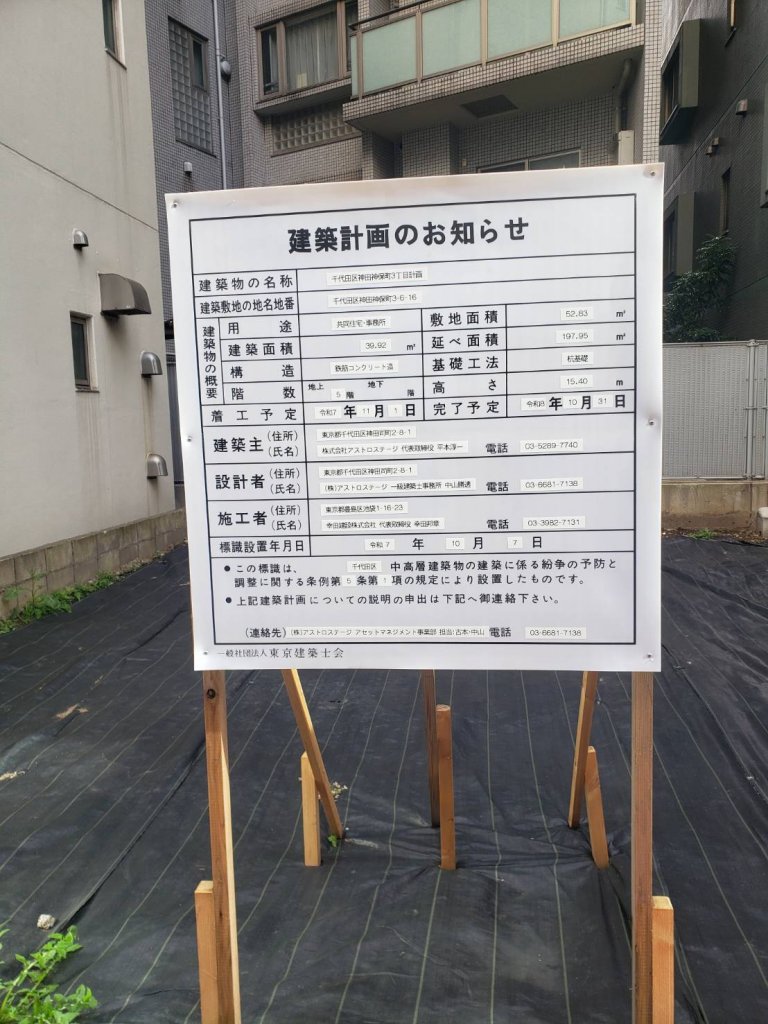 建築計画のお知らせ
建築物の名称 千代田区神田神保町3丁目計画
建築敷地の地名地番 千代田区神田神保町3-6-16
建築物の概要
用途 共同住宅・事務所 敷地面積 52.83 ㎡
建築面積 39.92 ㎡ 延べ面積 197.95 ㎡
構造 鉄筋コンクリート造 基礎工法 杭基礎
階数 地上 5 階 地下 階 高さ 15.40 m
着工予定 令和7 年 11 月 1 日 完了予定 令和8 年 10 月 31 日
建築主 (住所) 東京都千代田区神田司町2-8-1
(氏名) 株式会社アストロステージ 代表取締役 平本淳一 電話 03-5289-7740
設計者 (住所) 東京都千代田区神田司町2-8-1
(氏名) (株)アストロステージ 一級建築士事務所 中山勝透 電話 03-6681-7138
施工者 (住所) 東京都豊島区池袋1-16-23
(氏名) 幸田建設株式会社 代表取締役 幸田邦章 電話 03-3982-7131
標識設置年月日 令和 7 年 10 月 7 日
● この標識は、 千代田区 中高層建築物の建築に係る紛争の予防と
調整に関する条例第 5 条第 1 項の規定により設置したものです。
● 上記建築計画についての説明の申出は下記へ御連絡下さい。
(連絡先) (株)アストロステージ アセットマネジメント事業部 担当:古本・中山 電話 03-6681-7138
一般社団法人東京建築士会